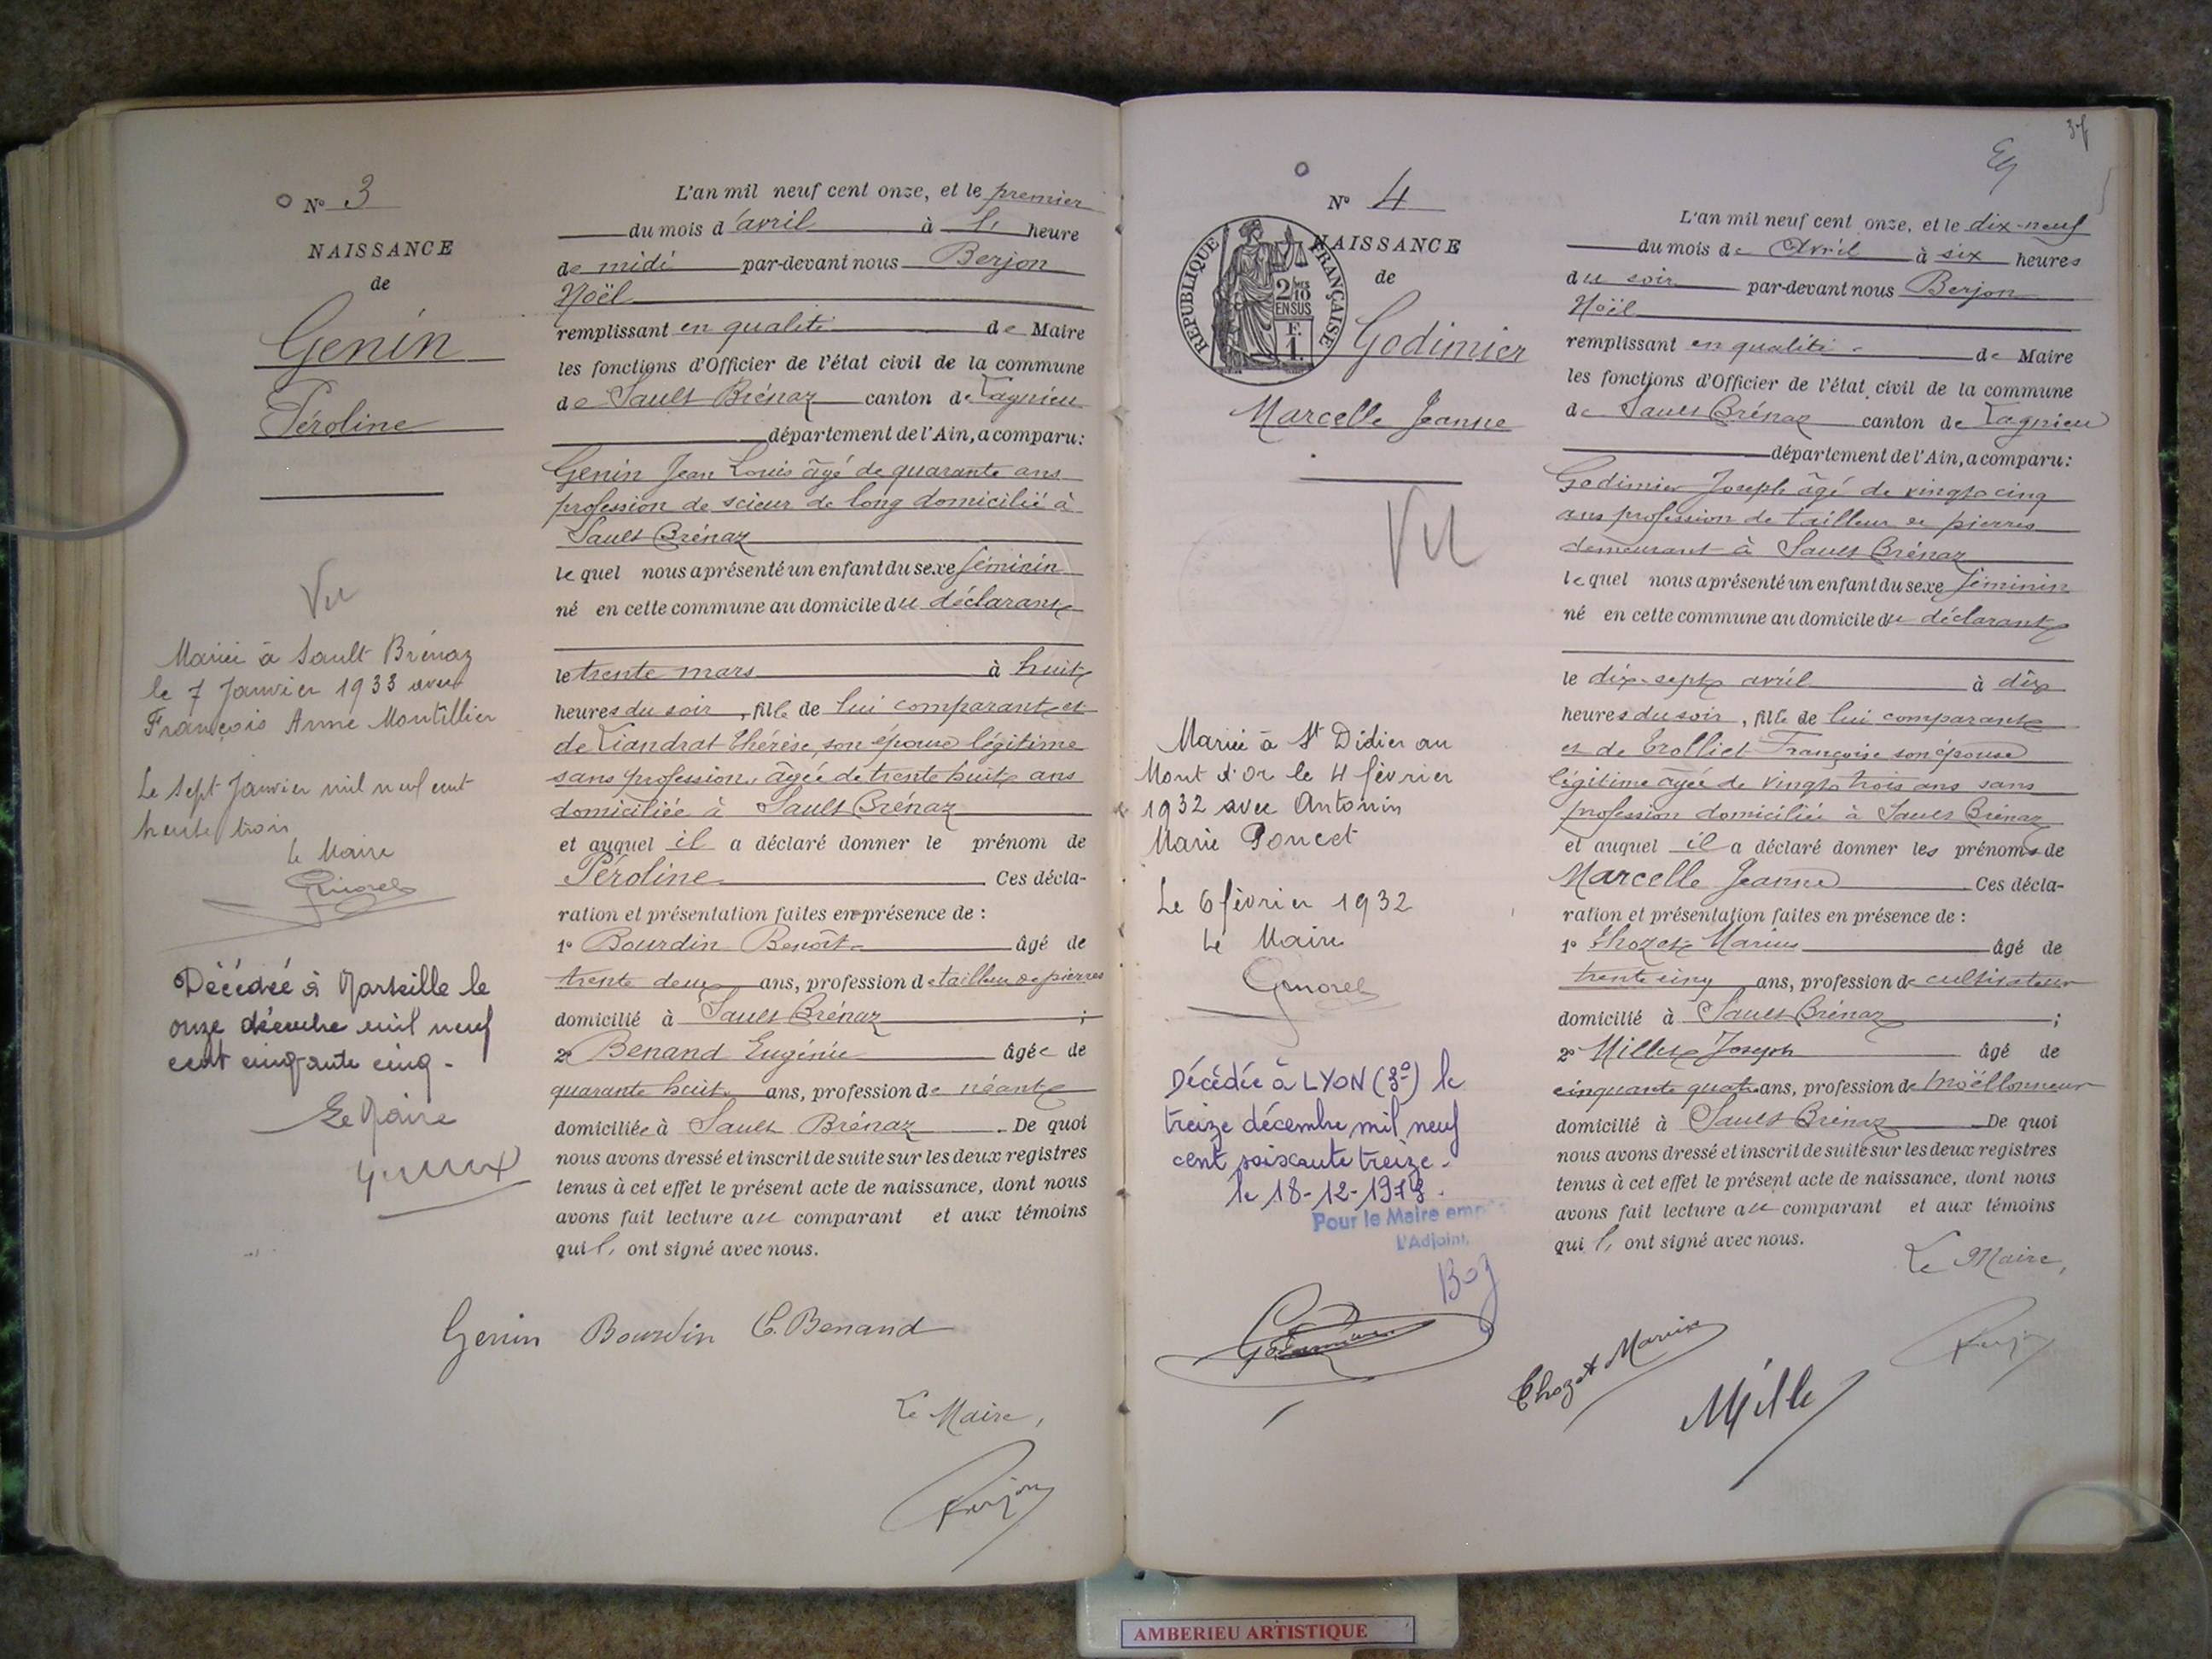 N° 3
NAISSANCE
de
Genin
Péroline
Vu
Mariée à Sault Brénaz
le 7 Janvier 1933 avec
François Anne Montillier
Le sept Janvier mil neuf cent
trente trois
le Maire
Décédée à Marseille le
onze décembre mil neuf
cent cinquante cinq -
Le Maire
L'an mil neuf cent onze, et le premier
du mois d'avril à 1, heure
de midi par-devant nous Berjon
Noël
remplissant en qualité de Maire
les fonctions d'Officier de l'état civil de la commune
de Sault Brénaz canton de Lagnieu
département de l'Ain, a comparu:
Genin Jean Louis âgé de quarante ans
profession de scieur de long domicilié à
Sault Brénaz
le quel nous a présenté un enfant du sexe féminin
né en cette commune au domicile du déclarant
le trente mars à huit
heures du soir, fille de lui comparant et
de Liandrat Thérèse, son épouse légitime
sans profession, âgée de trente huit ans
domiciliée à Sault Brénaz
et auquel il a déclaré donner le prénom de
Péroline Ces décla-
ration et présentation faites en présence de :
1° Bourdin Benoît âgé de
trente deux ans, profession de tailleur de pierres
domicilié à Sault Brénaz ;
2° Benand Eugénie âgée de
quarante huit ans, profession de néant
domiciliée à Sault Brénaz. De quoi
nous avons dressé et inscrit de suite sur les deux registres
tenus à cet effet le présent acte de naissance, dont nous
avons fait lecture au comparant et aux témoins
qui l, ont signé avec nous.
Genin Bourdin E. Benand
Le Maire,
Berjon
37
N° 4
NAISSANCE
de
REPUBLIQUE FRANÇAISE
2/10
EN SUS
F.
1.
Godimier
Marcelle Jeanne
Vu
Mariée à St Didier au
Mont d'or le 4 février
1932 avec Antonin
Marie Poncet
Le 6 février 1932
Le Maire
Décédée à LYON (3e) le
treize décembre mil neuf
cent soixante treize.
le 18-12-1973.
Pour le Maire emp
L'Adjoint,
L'an mil neuf cent onze, et le dix-neuf
du mois de Avril à six heures
du soir par-devant nous Berjon
Noël
remplissant en qualité de Maire
les fonctions d'Officier de l'état civil de la commune
de Sault Brénaz canton de Lagnieu
département de l'Ain, a comparu:
Godimier Joseph âgé de vingt cinq
ans profession de tailleur de pierres
demeurant à Sault Brénaz
le quel nous a présenté un enfant du sexe féminin
né en cette commune au domicile du déclarant
le dix-sept avril à dix
heures du soir, fille de lui comparant
et de Trolliet Françoise son épouse
légitime âgée de vingt trois ans sans
profession domiciliée à Sault Brénaz
et auquel il a déclaré donner les prénoms de
Marcelle Jeanne Ces décla-
ration et présentation faites en présence de :
1° Chozet Marius âgé de
trente cinq ans, profession de cultivateur
domicilié à Sault Brénaz ;
2° Millet Joseph âgé de
cinquante quatre ans, profession de moëllonneur
domicilié à Sault Brénaz De quoi
nous avons dressé et inscrit de suite sur les deux registres
tenus à cet effet le présent acte de naissance, dont nous
avons fait lecture au comparant et aux témoins
qui l, ont signé avec nous.
Le Maire,
Godimier Chozet Marius Mille Berjon
AMBERIEU ARTISTIQUE